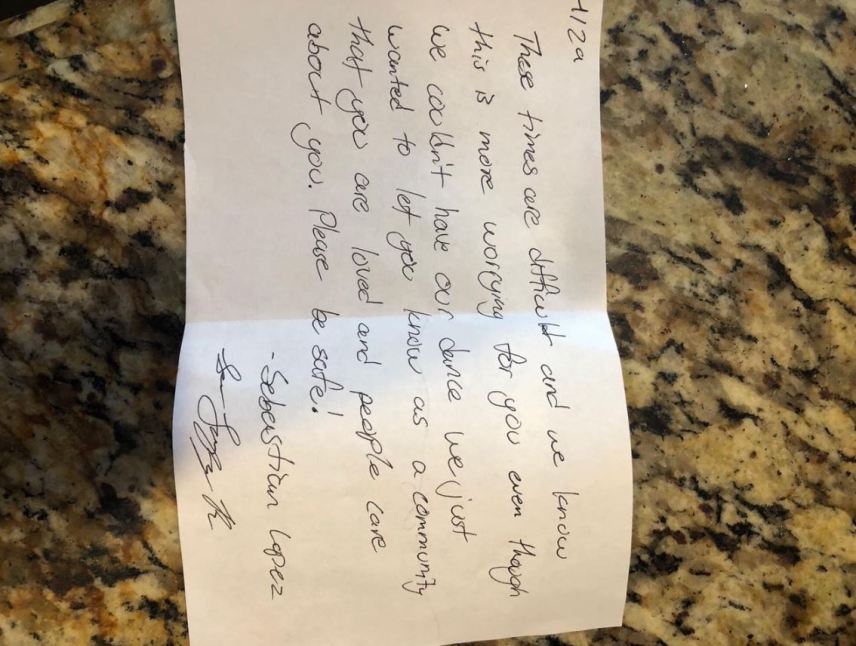 These times are difficult and we know
this is more worrying for you even though
we couldn't have our dance we just
wanted to let you know as a community
that you are loved and people care
about you. Please be safe!
- Sebastian Lopez